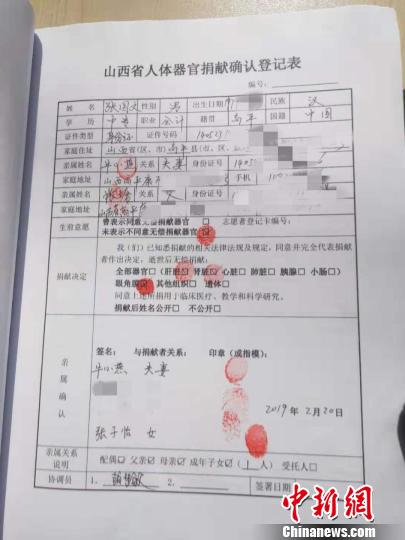 山西省人体器官捐献确认登记表
编号:
姓 名 张国文 性别 男 出生日期 民族 汉
学 历 中专 职业 会计 籍贯 高平 国籍 中国
证件类型 身份证 证件号码 140523
家庭住址 山西省(区、市)高平县(市、区)
亲属姓名 牛小燕 关系 夫妻 身份证号
家庭地址 手机
亲属姓名 关系 父 身份证号
家庭地址
生前意愿 曾表示同意无偿捐献器官 □ 志愿者登记卡编号:
未表示不同意无偿捐献器官
捐献决定 我(们)已知悉捐献的相关法律法规及规定,同意并完全代表捐献
者作出决定,逝世后无偿捐献:
全部器官□(肝脏 肾脏 心脏□ 肺脏□ 胰腺□ 小肠□)
眼角膜 其他组织□ 遗体□
同意上述所捐用于临床医疗、教学和科学研究。
捐献后姓名公开□ 不公开□
亲属确认 签名: 与捐献者关系: 印章(或指模):
牛小燕 夫妻
2019年2月20日
张子怡 女
亲属关系说明 配偶☑ 父亲☑ 母亲☑ 成年子女☑(1人) 受托人□
协调员 1. 2. 签署日期
中新网
www.chinanews.com